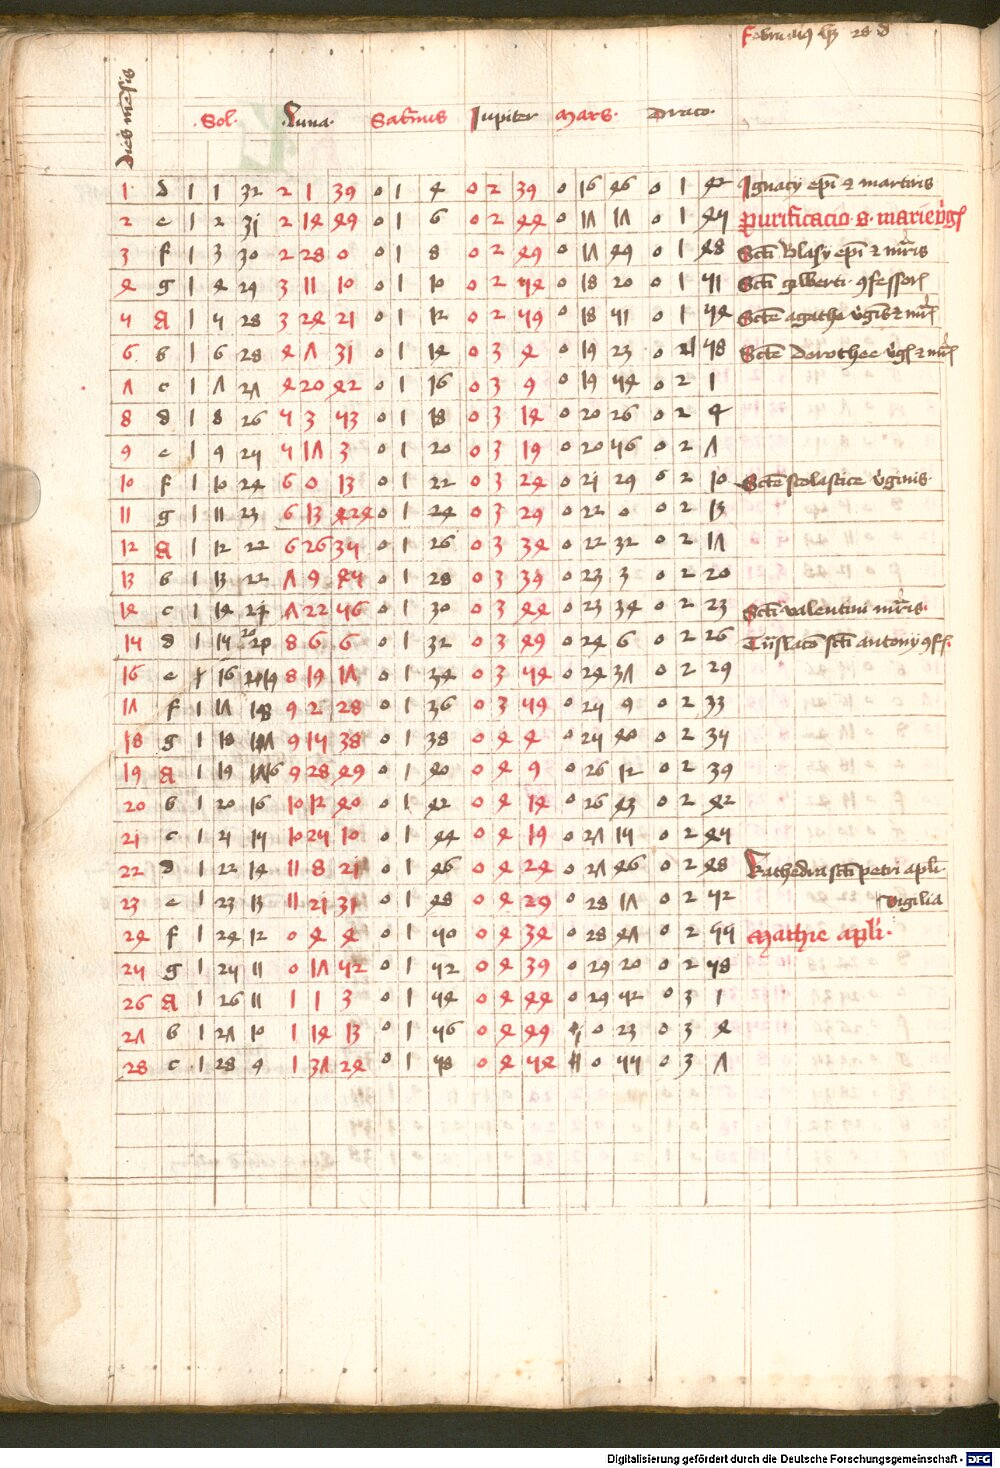 Februarius h3 28 d
Dies mensis
Sol. Luna. Saturnus Jupiter Mars. Draco.
1 d 1 1 32 2 1 39 0 1 4 0 2 39 0 16 46 0 1 42 Ignacy epi et martiris
2 e 1 2 31 2 14 49 0 1 6 0 2 44 0 17 17 0 1 45 purificacio s. marie vgs
3 f 1 3 30 2 28 0 0 1 8 0 2 49 0 17 49 0 1 48 Scti Blasy epi et mris
4 g 1 4 29 3 11 10 0 1 10 0 2 54 0 18 20 0 1 51 Scti gilberti 9fessor
5 A 1 5 28 3 24 21 0 1 12 0 2 59 0 18 51 0 1 54 Scte agathe vgis et mr
6 b 1 6 28 4 7 31 0 1 14 0 3 4 0 19 23 0 1 58 Scte Dorothee vgs et mr
7 c 1 7 27 4 20 42 0 1 16 0 3 9 0 19 54 0 2 1
8 d 1 8 26 5 3 53 0 1 18 0 3 14 0 20 26 0 2 4
9 e 1 9 25 5 17 3 0 1 20 0 3 19 0 20 56 0 2 7
10 f 1 10 24 6 0 13 0 1 22 0 3 24 0 21 29 0 2 10 Scte scolastice vginis
11 g 1 11 23 6 13 24 0 1 24 0 3 29 0 22 0 0 2 13
12 A 1 12 22 6 26 35 0 1 26 0 3 34 0 22 32 0 2 17
13 b 1 13 22 7 9 45 0 1 28 0 3 39 0 23 3 0 2 20
14 c 1 14 21 7 22 56 0 1 30 0 3 44 0 23 34 0 2 23 Scti valentini mris.
15 d 1 15 20 8 6 6 0 1 32 0 3 49 0 24 6 0 2 26 Tnslaco scti antony 9fs.
16 e 1 16 19 8 19 17 0 1 34 0 3 54 0 24 37 0 2 29
17 f 1 17 18 9 2 28 0 1 36 0 3 59 0 25 9 0 2 33
18 g 1 18 17 9 15 38 0 1 38 0 4 4 0 25 40 0 2 35
19 A 1 19 16 9 28 49 0 1 40 0 4 9 0 26 12 0 2 39
20 b 1 20 16 10 12 40 0 1 42 0 4 14 0 26 43 0 2 42
21 c 1 21 15 10 25 10 0 1 44 0 4 19 0 27 15 0 2 45
22 d 1 22 14 11 8 21 0 1 46 0 4 24 0 27 46 0 2 48 Kathedra scti petri apli
23 e 1 23 13 11 21 31 0 1 48 0 4 29 0 28 17 0 2 52 Vigilia
24 f 1 24 12 0 4 4 0 1 50 0 4 34 0 28 47 0 2 55 Mathie apli.
25 g 1 25 11 0 17 52 0 1 52 0 4 39 0 29 20 0 2 58
26 A 1 26 11 1 1 3 0 1 54 0 4 44 0 29 52 0 3 1
27 b 1 27 10 1 14 13 0 1 56 0 4 49 1 0 23 0 3 4
28 c 1 28 9 1 37 24 0 1 58 0 4 54 1 0 55 0 3 7
Digitalisierung gefördert durch die Deutsche Forschungsgemeinschaft - DFG